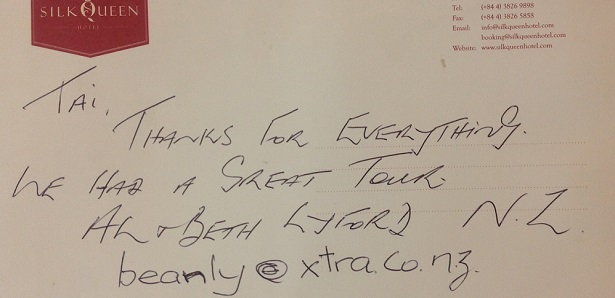 SILK QUEEN
HOTEL
Tel: (+84 4) 3826 9898
Fax: (+84 4) 3826 5858
Email: info@silkqueenhotel.com
booking@silkqueenhotel.com
Website: www.silkqueenhotel.com
TAi,
THANKS FOR EVERYTHiNG.
WE HAD A GREAT TOUR.
AL + BETH LYFORD N.Z.
beanly@xtra.co.nz.